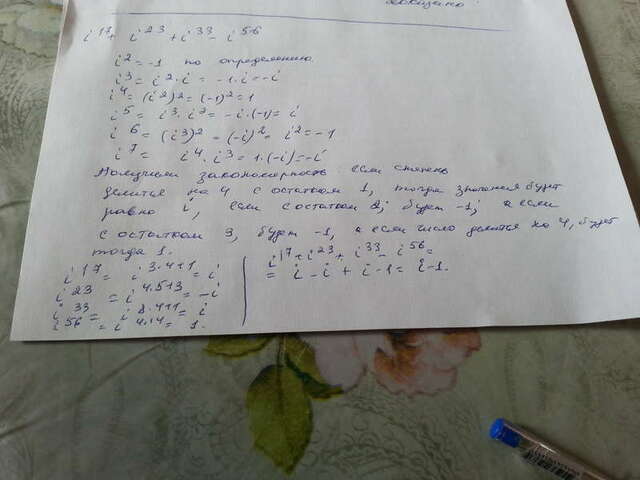 доказано
i¹⁷ + i²³ + i³³ - i⁵⁶
i² = -1 по определению
i³ = i² · i = -1 · i = -i
i⁴ = (i²)² = (-1)² = 1
i⁵ = i³ · i² = -i · (-1) = i
i⁶ = (i³)² = (-i)² = i² = -1
i⁷ = i⁴ · i³ = 1 · (-i) = -i
Получили закономерность: если степень
делится на 4 с остатком 1, тогда значения будет
равно i, если с остатком 2, будет -1, а если
с остатком 3, будет -1, а если число делится на 4, будет
тогда 1.
i¹⁷ = i³·⁴⁺¹ = i
i²³ = i⁴·⁵⁺³ = -i
i³³ = i⁸·⁴⁺¹ = i
i⁵⁶ = i⁴·¹⁴ = 1.
i¹⁷ + i²³ + i³³ - i⁵⁶ =
= i - i + i - 1 = i - 1.